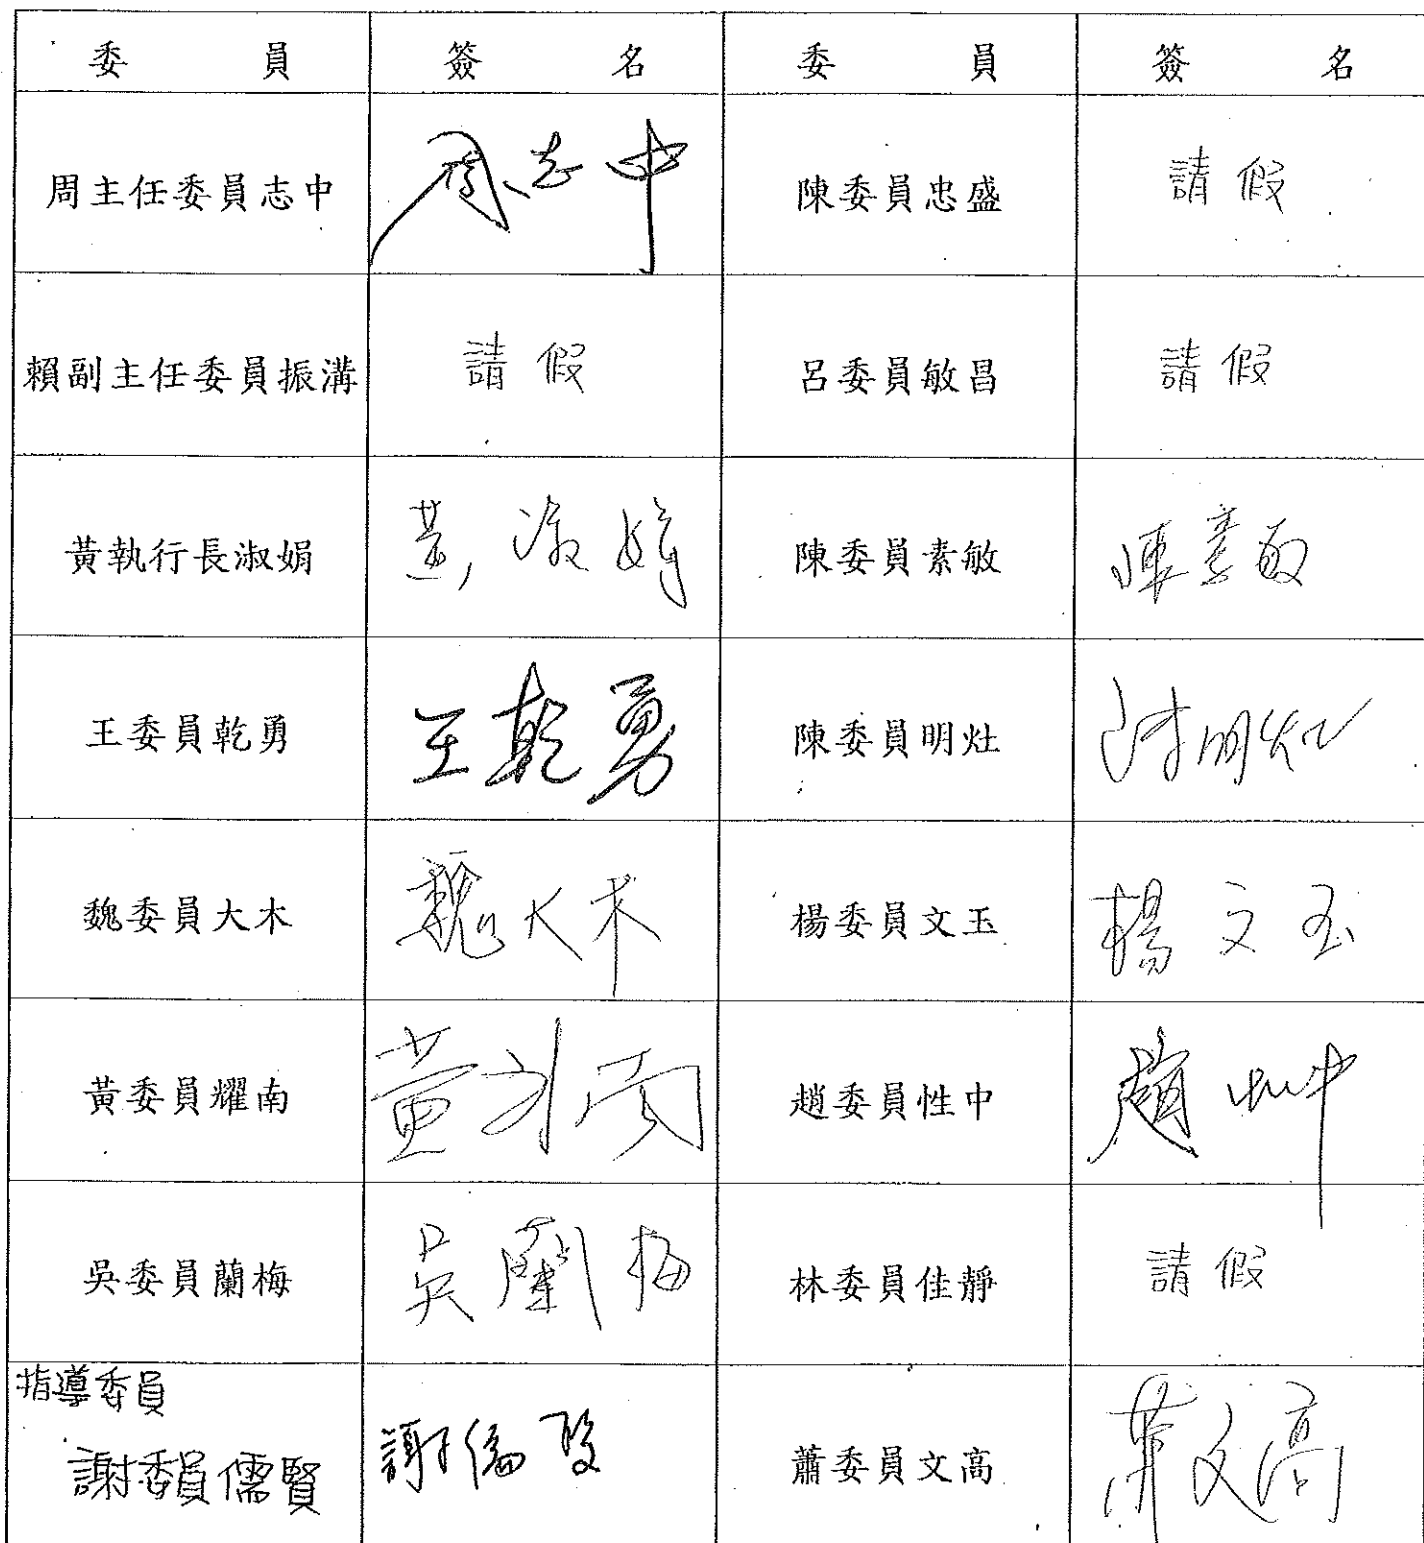 委員 簽名 委員 簽名
周主任委員志中 周志中 陳委員忠盛 請假
賴副主任委員振溝 請假 呂委員敏昌 請假
黃執行長淑娟 黃淑娟 陳委員素敏 陳素敏
王委員乾勇 王乾勇 陳委員明灶 陳明灶
魏委員大木 魏大木 楊委員文玉 楊文玉
黃委員耀南 黃 南 趙委員性中 趙性中
吳委員蘭梅 吳蘭梅 林委員佳靜 請假
指導委員
謝委員儒賢 謝儒賢 蕭委員文高 蕭文高